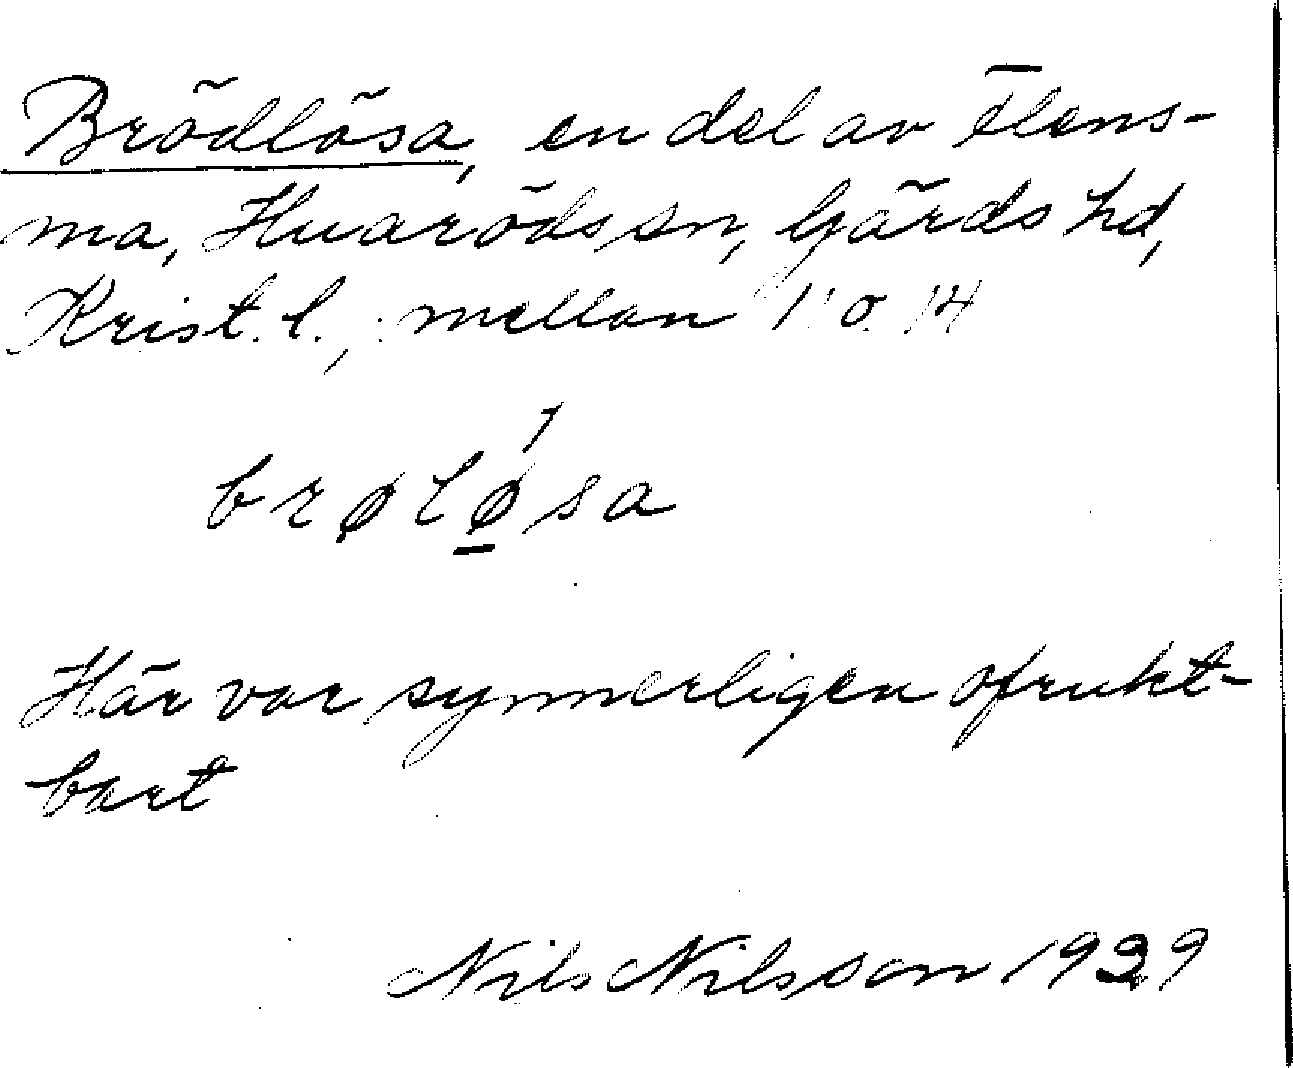 Brödlösa, en del av Elens-
ma, Huaröds sn, Gärds hd,
Krist. l., mellan 1 o. 14
brøløsa
Här var synnerligen ofrukt-
bart
Nils Nilsson 1929